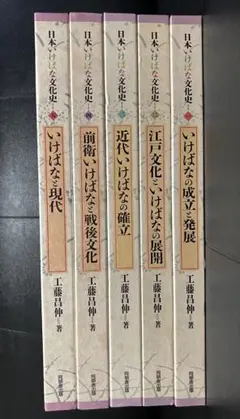 日本いけばな文化史 一
いけばなの成立と発展
工藤昌伸=著
同朋舎出版
日本いけばな文化史 二
江戸文化といけばなの展開
工藤昌伸=著
同朋舎出版
日本いけばな文化史 三
近代いけばなの確立
工藤昌伸=著
同朋舎出版
日本いけばな文化史 四
前衛いけばなと戦後文化
工藤昌伸=著
同朋舎出版
日本いけばな文化史 五
いけばなと現代
工藤昌伸=著
同朋舎出版